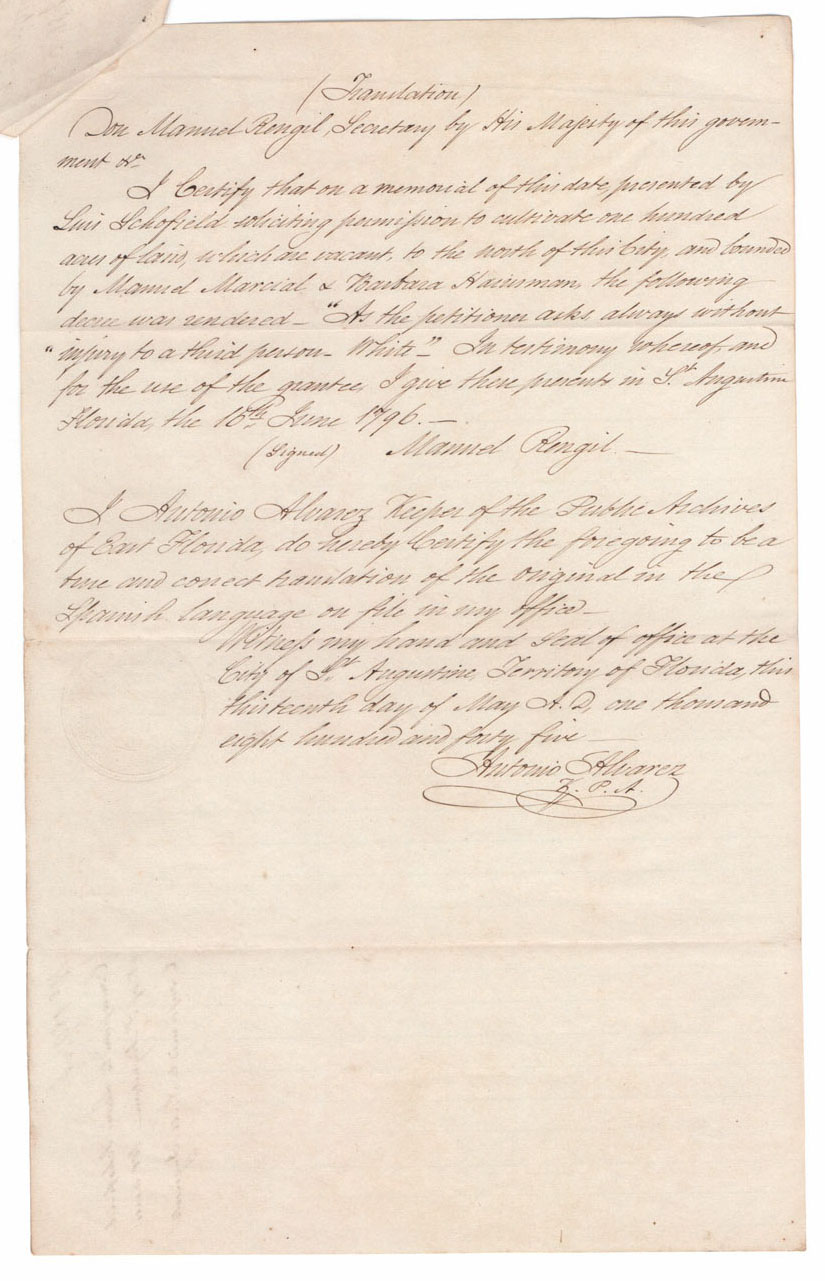 (Translation)
Don Manuel Rengil, Secretary by His Majesty of this govern-
ment &a
I Certify that on a memorial of this date, presented by
Luis Schofield soliciting permission to cultivate one hundred
acres of land, which are vacant, to the north of this City, and bounded
by Manuel Marcial & Barbara Hainsman, the following
decree was rendered - "As the petitioner asks always without
"injury to a third person - White" - In testimony whereof, and
for the use of the grantee, I give these presents in St. Augustine
Florida, the 16th June 1796. -
(Signed) Manuel Rengil -
I Antonio Alvarez Keeper of the Public Archives
of East Florida, do hereby Certify the foregoing to be a
true and correct translation of the original in the
Spanish language on file in my office -
Witness my hand and seal of office at the
City of St. Augustine, Territory of Florida, this
thirteenth day of May A. D. one thousand
eight hundred and forty five -
Antonio Alvarez
K. P. A.